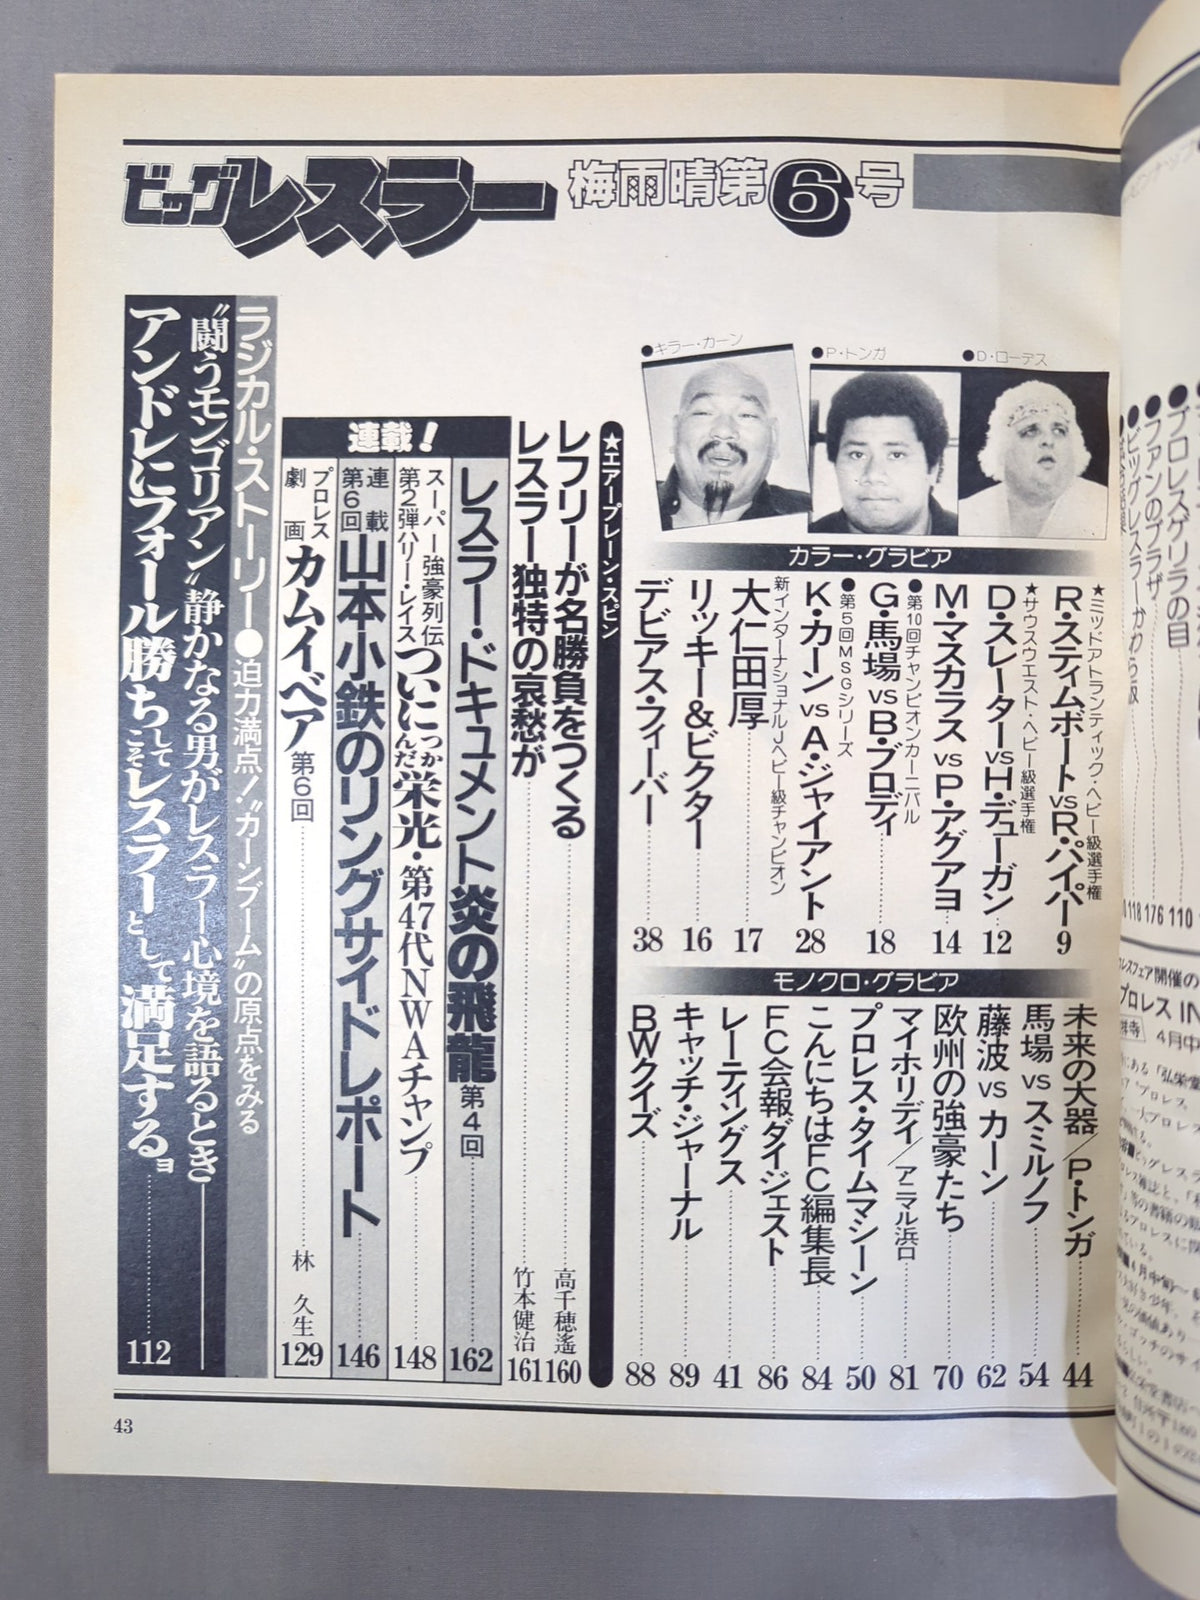 ビッグレスラー 梅雨晴第6号
●キラー・カーン
●P・トンガ
●D・ローデス
カラー・グラビア
★ミッドアトランティック・ヘビー級選手権
R・スティムボートvsR・パイパー 9
★サウスウエスト・ヘビー級選手権
D・スレーターvsH・デューガン 12
M・マスカラスvsP・アグアヨ 14
●第10回チャンピオンカーニバル
G・馬場vsB・ブロディ 18
●第5回MSGシリーズ
K・カーンvsA・ジャイアント 28
新インターナショナルJヘビー級チャンピオン
大仁田厚 17
リッキー&ビクター 16
デビアス・フィーバー 38
モノクロ・グラビア
未来の大器/P・トンガ 44
馬場vsスミルノフ 54
藤波vsカーン 62
欧州の強豪たち 70
マイホリデイ/アニマル浜口 81
プロレス・タイムマシーン 50
こんにちはFC編集長 84
FC会報ダイジェスト 86
レーティングス 41
キャッチ・ジャーナル 89
BWクイズ 88
★エアープレーン・スピン
レフリーが名勝負をつくる 高千穂遙 160
レスラー独特の哀愁が 竹本健治 161
連載!
レスラー・ドキュメント炎の飛龍 第4回 162
スーパー強豪列伝
第2弾ハリー・レイス ついにつかんだ栄光・第47代NWAチャンプ 148
連載第6回 山本小鉄のリングサイドレポート 146
プロレス劇画 カムイベア 第6回 林 久生 129
ラジカル・ストーリー●迫力満点!“カーンブーム”の原点をみる
“闘うモンゴリアン”静かなる男がレスラー心境を語るとき——
アンドレにフォール勝ちしてこそレスラーとして満足するヨ 112
43
プロレスゲリラの目 110
ファンのプラザ 176
ビッグレスラーかわら版 118
プロレス IN
4月中